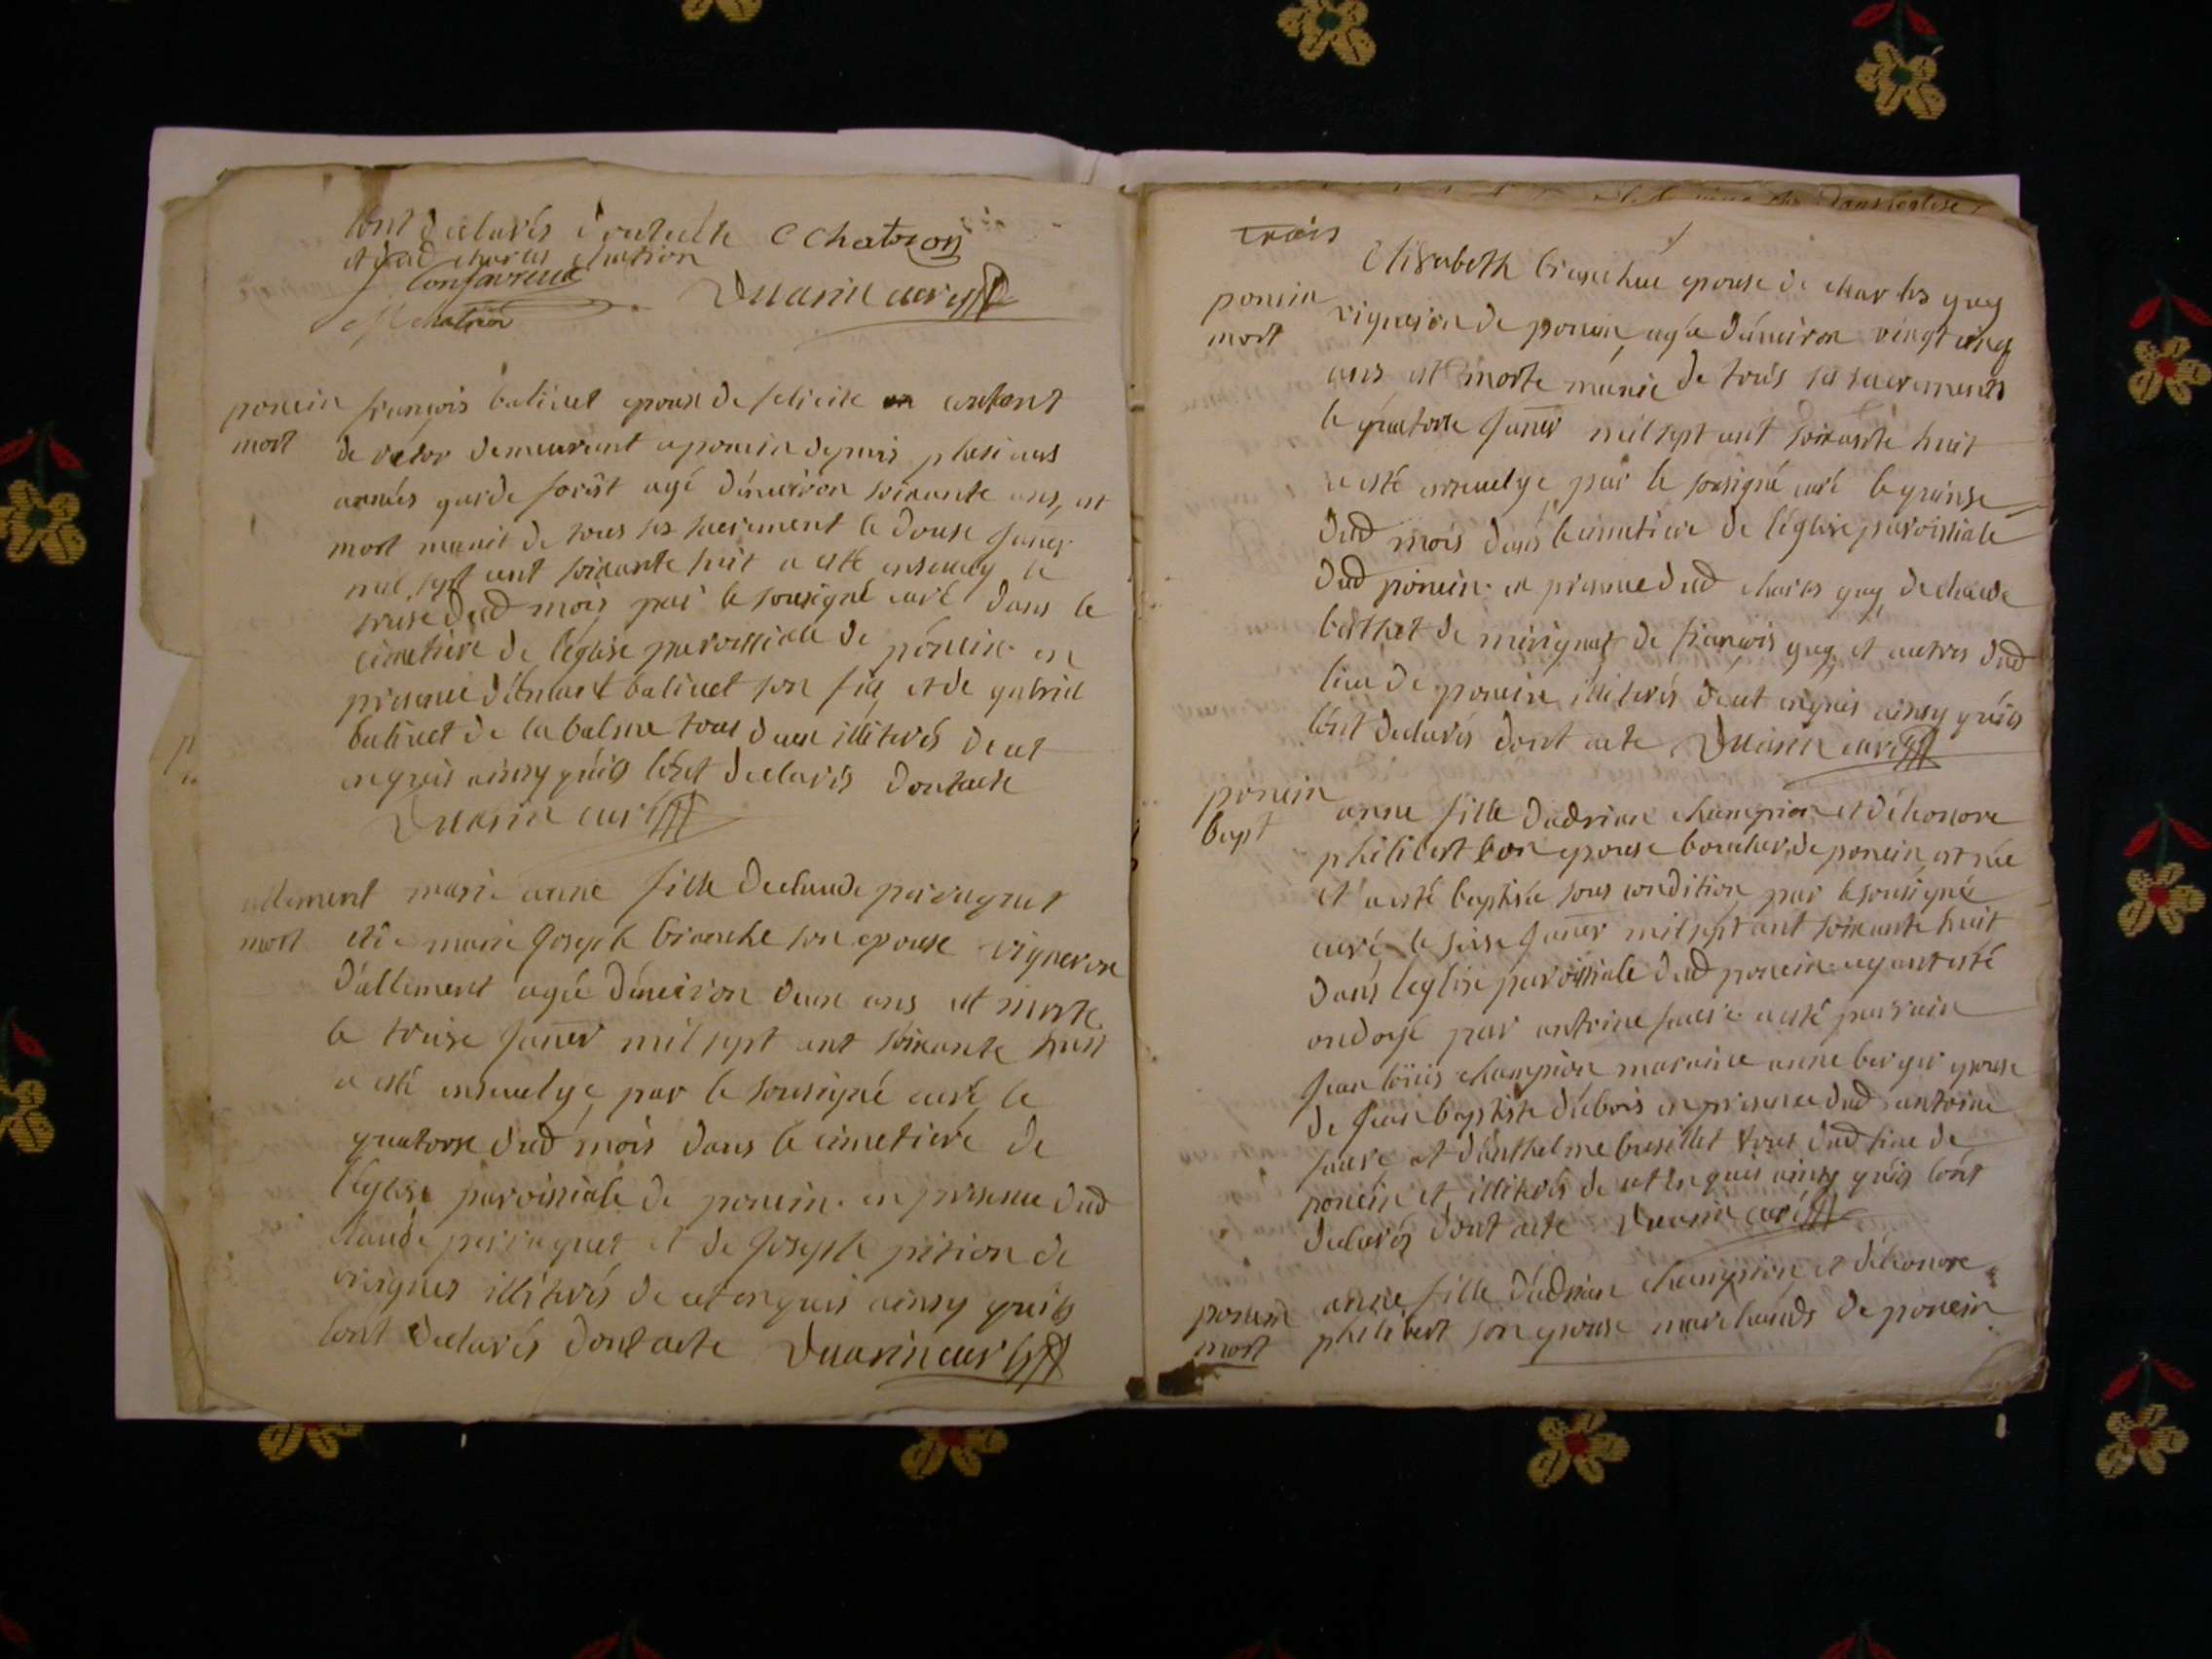 lont declarés dontacte C Chatron
et dud charles chatron
Confavreux
Duarin curé
chatron
poncin françois balivet epoux de felicite
mort de demeurant a poncin depuis plusieurs
années garde forêt agé dénviron soixante ans, est
mort munit de tous ses sacrement le douse Janer
mil sept cent soixante huit a esté ensevely le
treise dud mois par le sousigné curé dans le
cimetiere de léglise parroissiale de poncin en
presence balivet son fils et de gabriel
balivet de la balme tous deux illiterés de cet
enquis ainsy qu'ils lónt declarés dontacte
Duarin curé
allement marie anne fille declaude perraguet
mort et de marie Joseph branche son epouse vigneron
d'allement agée d'environ deux ans est morte
le treise Janer mil sept cent soixante huit
a esté ensevelye, par le sousigné curé, le
quatorse dud mois dans le cimetiere de
l'eglise paroissiale de poncin. en presence dud
claude perraguet et de Joseph de
illiterés de cet enquis ainsy quils
lont declarés dont acte Duarin curé
trois
Elisabeth epouse de charles guy
poncin vigneron de poncin, agée dénviron vingt cinq
mort ans est morte munie de touts ses sacrements
le quatorse Janer mil sept cent soixante huit
a esté ensevelye par le sousigné curé le quinse
dud mois dans le cimetiere de léglise paroissiale
dud poncin. en presence dud charles guy, de claude
berthet de merignat de françois guy et autres dud
lieu de poncin illiterés de cet enquis ainsy qu'ils
lónt declarés dont acte Duarin curé
poncin anne fille dadrian champion et déleonore
bapt philibert son epouse boucher de poncin, est née
et a esté baptisée sous condition par le sousigné
curé, le seise Janer mil sept cent soixante huit
dans leglise paroissiale dud poncin ayant esté
ondoyé par antoine favre a esté parrain
Jean loüis champion maraine anne berger epouse
de Jean baptiste dubois en presence dud antoine
favre et dánthelme tous dud lieu de
poncin et illiterés de cet enquis ainsy quils lónt
declarés dont acte Duarin curé
poncin anne fille dádrian champion, et déleonore
mort philibert son epouse marchands de poncin